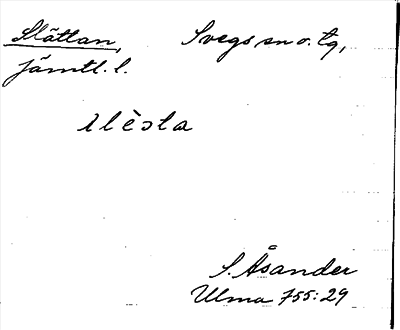 Slättan, Svegs sn o. tg,
Jämtl. l.
slèɔta
S. Åsander
Ulma 755:29